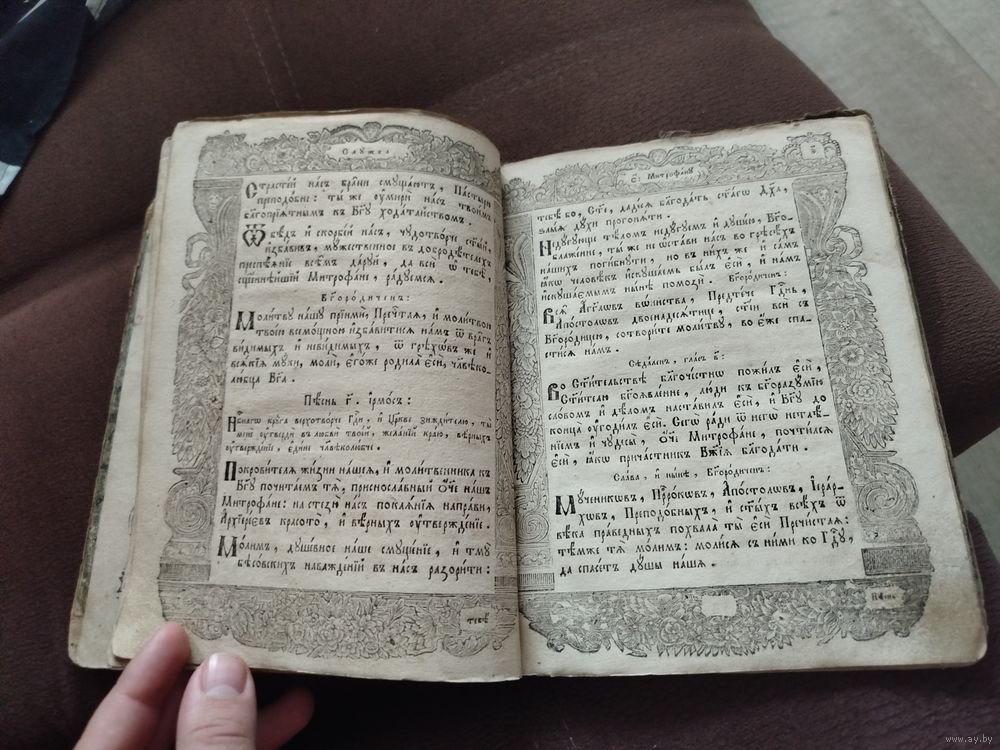 Слꙋжба
Страстей на́съ бра̑ни смꙋща́ютъ, Па́стырю
преподо́бне: ты́ же ᲂу҆мирѝ на́съ твои́мъ
благопрїѧ́тнымъ къ бг҃ꙋ хода́тайствомъ.
Ѿ бѣ́дъ и҆ скорбе́й на́съ, чꙋдотво́рче ст҃ы́й,
и҆зба́вивъ, мꙋ́жественное въ добродѣ́телехъ
преспѣѧ́нїе всѣ́мъ да́рꙋй, да всѝ ѡ҆ тебѣ̀,
сщ҃еннѣ́йшїй Митрофа́не, ра́дꙋемсѧ.
Бг҃оро́диченъ:
Моли́твꙋ на́шꙋ прїимѝ, Пречⷭ҇таѧ, и҆ моли́твою
твое́ю всемо́щною и҆зба́витисѧ на́мъ ѿ вра̑гъ
ви́димыхъ и҆ неви́димыхъ, ѿ грѣхѡ́въ же и҆
всѧ́кїѧ мꙋ́ки, молѝ, є҆го́же родила̀ є҆сѝ, чл҃вѣко-
лю́бца бг҃а.
Пѣ́снь г҃. І҆рмо́съ:
Нбⷭ҇нагѡ крꙋ́га верхотво́рче гдⷭ҇и, и҆ цр҃кве зижди́телю, ты̀
менѐ ᲂу҆твердѝ въ любвѝ твое́й, жела́нїй кра́ю, вѣ́рныхъ
ᲂу҆твержде́нїе, є҆ди́не чл҃вѣколю́бче.
Покрови́телѧ жи́зни на́шеѧ, и҆ моли́твенника къ
бг҃ꙋ почита́емъ тѧ̀, присносла́вный ѻ҆́ч҃е на́шъ
Митрофа́не: на стезю̀ на́съ покаѧ́нїѧ напра́ви,
А҆рхїере́євъ красото̀, и҆ вѣ́рныхъ ᲂу҆твержде́нїе.
Мо́лимъ, дꙋше́вное на́ше смꙋще́нїе, и҆ тмꙋ̀
бѣсо́вскихъ наважде́нїй въ на́съ разорѝти:
тебѣ̀
ст҃: Митрофа́нꙋ
тебѣ́ бо, ст҃е, даде́сѧ благода́ть ст҃а́гѡ дх҃а,
ѕлы̑ѧ дꙋ́хи прогонѧ́ти.
Недꙋ́гꙋюще тѣ́ломъ недꙋ́гꙋемъ и҆ дꙋше́ю, бг҃о-
блаже́нне, ты́ же не ѡ҆ста́ви на́съ во грѣсѣ́хъ
на́шихъ поги́бнꙋти, но въ ни́хъ же и҆ са́мъ
ꙗ҆́кѡ человѣ́къ и҆скꙋша́емь бы́лъ є҆сѝ, и҆ на́мъ
и҆скꙋша́емымъ ны́нѣ помозѝ. Бг҃оро́диченъ:
Всѧ̑ А҆́гг҃лѡвъ вѡ́инства, Предте́че гдⷭ҇нь,
А҆по́столѡвъ двоенадесѧ́тице, ст҃і́и всѝ съ
Бг҃оро́дицею, сотвори́те моли́твꙋ, во є҆́же спа-
сти́сѧ на́мъ.
Сѣда́ленъ, гла́съ и҃:
Во ст҃и́тельствѣ благоче́стнѡ пожи́лъ є҆сѝ,
Ст҃и́телю бг҃оѧвле́нне, лю́ди къ бг҃ора́зꙋмїю
сло́вомъ и҆ дѣ́ломъ наста́вилъ є҆сѝ, и҆ бг҃ꙋ до
конца̀ ᲂу҆годи́лъ є҆сѝ, сегѡ̀ ра́ди ѿ негѡ̀ нетлѣ́-
нїемъ и҆ чꙋдесы̀, ѻ҆́ч҃е Митрофа́не, почти́лсѧ
є҆сѝ, ꙗ҆́кѡ прича́стникъ бж҃їѧ благода́ти.
Сла́ва, и҆ ны́нѣ, Бг҃оро́диченъ:
Мꙋ́ченикѡвъ, Прⷪ҇ро́кѡвъ, А҆по́столѡвъ, І҆ера́р-
хѡвъ, Преподо́бныхъ, и҆ ст҃ы́хъ всѣ́хъ ѿ
вѣ́ка пра́ведныхъ похвала̀ ты̀ є҆сѝ Пречи́стаѧ:
тѣ́мже тѧ̀ мо́лимъ: моли́сѧ съ ни́ми ко гдⷭ҇ꙋ,
да спасе́тъ дꙋ́шы на́шѧ.
Пѣ́снь
www.ay.by